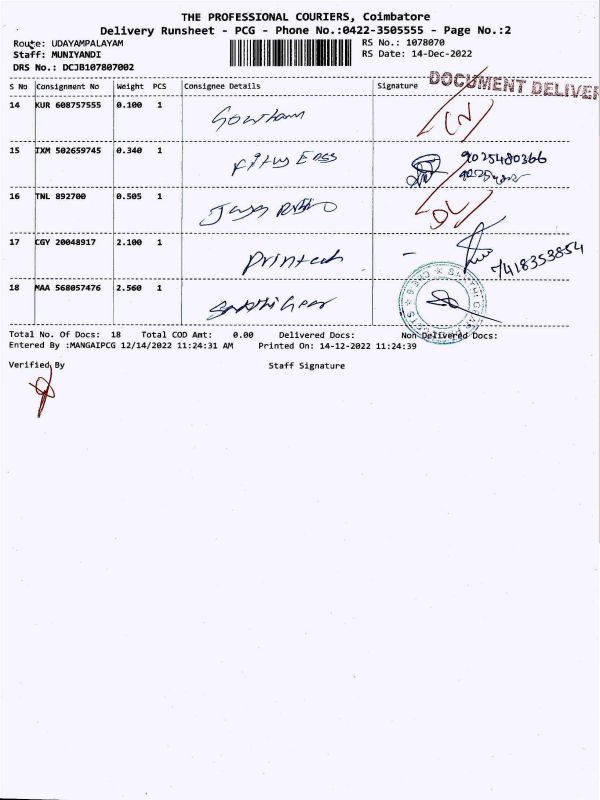 THE PROFESSIONAL COURIERS, Coimbatore
Delivery Runsheet - PCG - Phone No.:0422-3505555 - Page No.:2
Route: UDAYAMPALAYAM
RS No.: 1078070
Staff: MUNIYANDI
RS Date: 14-Dec-2022
DRS No.: DCJB107807002
DOCUMENT DELIVER
S No Consignment No Weight PCS Consignee Details Signature
14 KUR 608757555 0.100 1 Gowtham
15 IXM 502659745 0.340 1 9025480366
16 TNL 892700 0.505 1
17 CGY 20048917 2.100 1 Printech 7418353854
18 MAA 568057476 2.560 1
Total No. Of Docs: 18 Total COD Amt: 0.00 Delivered Docs: Non Delivered Docs:
Entered By :MANGAIPCG 12/14/2022 11:24:31 AM Printed On: 14-12-2022 11:24:39
Verified By Staff Signature